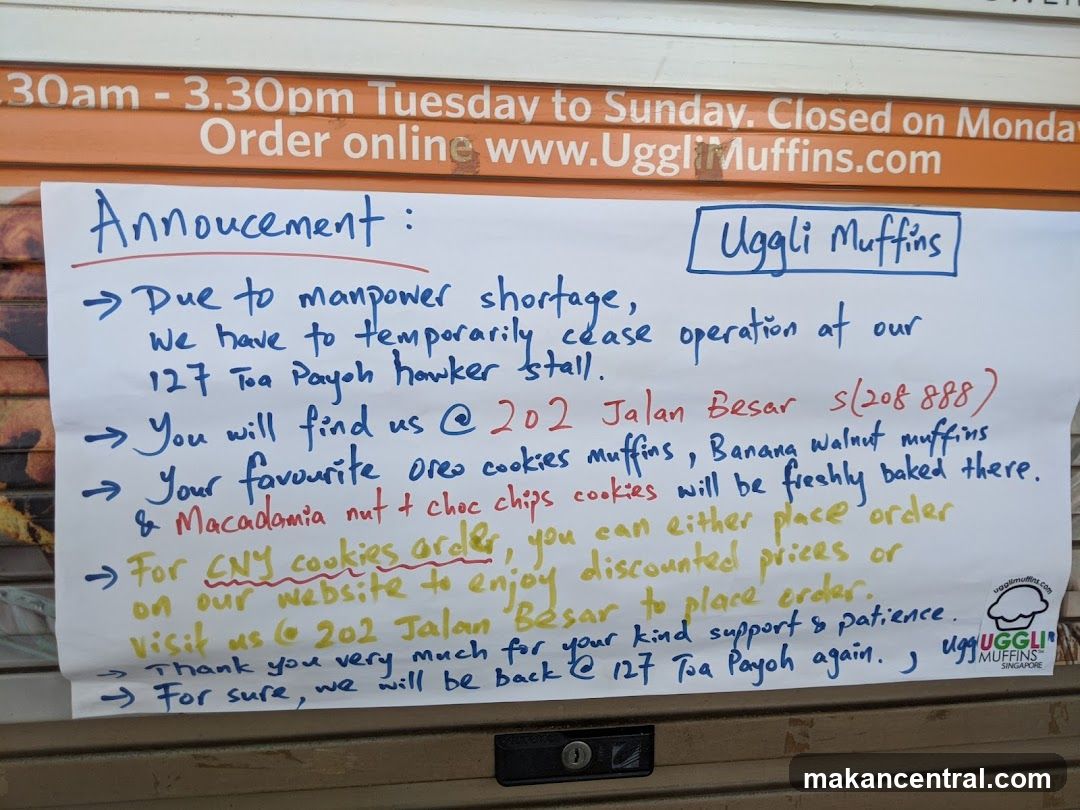 .30am - 3.30pm Tuesday to Sunday. Closed on Monday
Order online www.UggliMuffins.com
Annoucement :
Uggli Muffins
→ Due to manpower shortage,
we have to temporarily cease operation at our
127 Toa Payoh hawker stall.
→ You will find us @ 202 Jalan Besar S(208 888)
→ Your favourite oreo cookies muffins, Banana walnut muffins
& Macadamia nut + choc chips cookies will be freshly baked there.
→ For CNY cookies order, you can either place order
on our website to enjoy discounted prices or
visit us @ 202 Jalan Besar to place order.
→ Thank you very much for your kind support & patience.
→ For sure, we will be back @ 127 Toa Payoh again. , ugg
ugglimuffins.com
UGGLI™
MUFFINS
SINGAPORE
makancentral.com